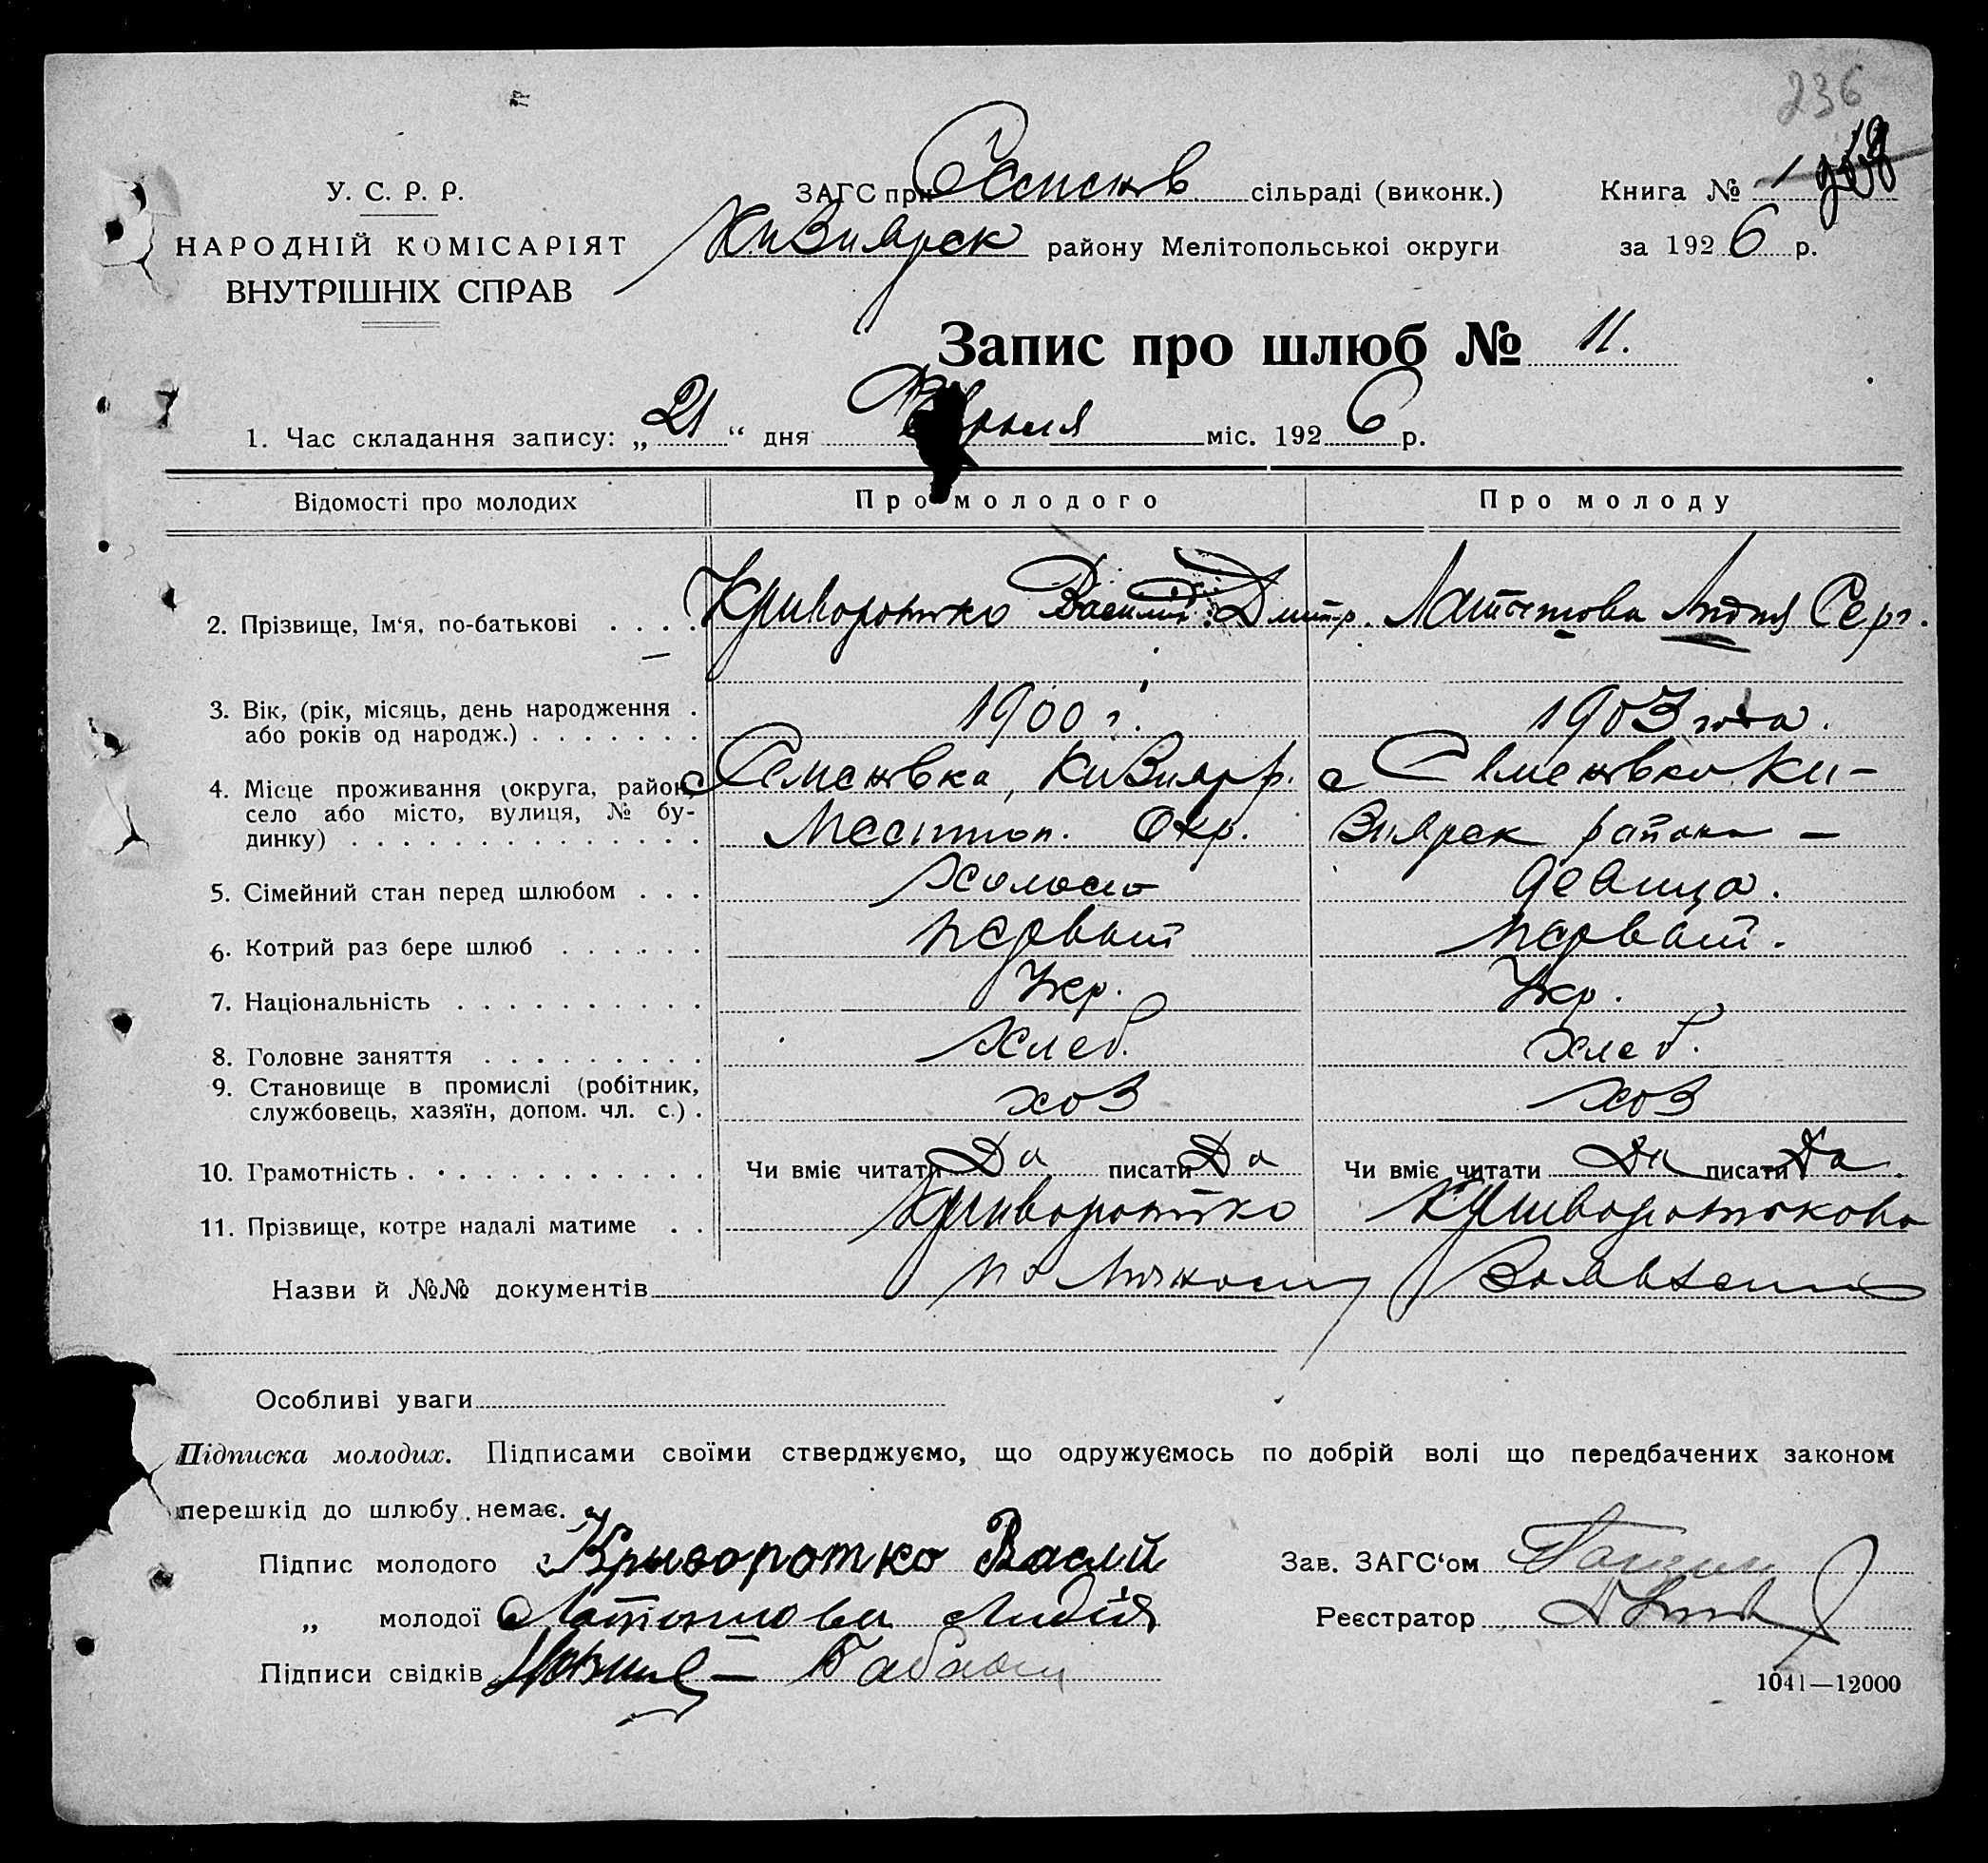 236
У. С. Р. Р.
НАРОДНІЙ КОМІСАРІЯТ
ВНУТРІШНІХ СПРАВ
ЗАГС при Семенов сільраді (виконк.)
Книга № 1
района Мелітопольської округи
за 1926 р.
Запис про шлюб № 11.
1. Час складання запису: „21“ дня міс. 1926 р.
Відомості про молодих Про молодого Про молоду
2. Прізвище, Ім‘я, по-батькові . . . . Криворотько Василий Дмитр. Латышова Лидия Серг.
3. Вік, (рік, місяць, день народження .
або років од народж.) . . . . . . . 1900 г. 1903 года.
4. Місце проживання (округа, район,
село або місто, вулиця, № бу-
динку) . . . . . . . . . . . . . . .
с Семеновка, Кизияр р. Мелитоп. Окр.
с Семеновка Ки-
зиярск района —
5. Сімейний стан перед шлюбом . . . холост девица.
6. Котрий раз бере шлюб . . . . . . первый первый.
7. Національність . . . . . . . . . . Укр. Укр.
8. Головне заняття . . . . . . . . . хлеб. хлеб.
9. Становище в промислі (робітник,
службовець, хазяїн, допом. чл. с.) . хоз хоз
10. Грамотність . . . . . . . . . . . . Чи вміє читати Да писати Да Чи вміє читати Да писати Да
11. Прізвище, котре надалі матиме . . Криворотько Криворотькова
Назви й №№ документів по личному
Особливі уваги
Підписка молодих. Підписами своїми стверджуємо, що одружуємось по добрій волі що передбачених законом
перешкід до шлюбу немає.
Підпис молодого Крыворотко Васлий
Зав. ЗАГС‘ом
„ молодої Латышова Лидія
Реєстратор
Підписи свідків
1041—12000